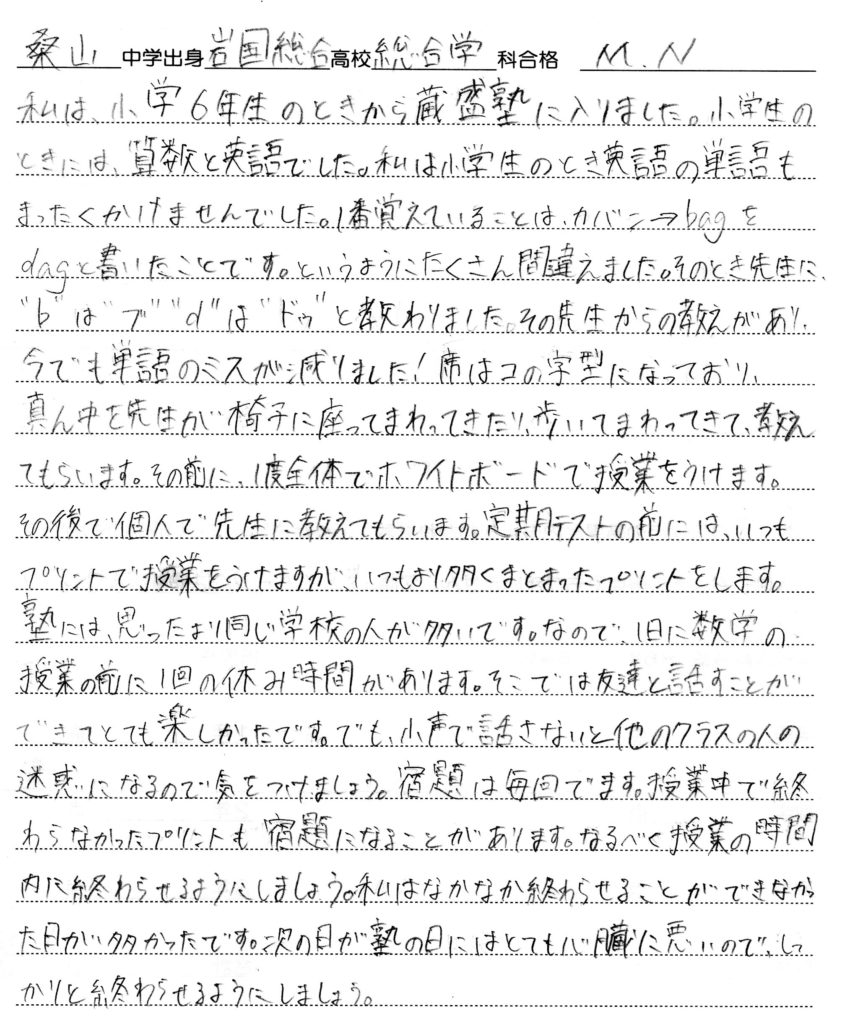 桑山 中学出身 岩国総合 高校 総合学 科合格 M.N
私は、小学6年生のときから蔵盛塾に入りました。小学生の
ときには、算数と英語でした。私は小学生のとき英語の単語も
まったくかけませんでした。1番覚えていることは、カバン→bagを
dagと書いたことです。というようにたくさん間違えました。そのとき先生に、
"b"は"ブ""d"は"ドゥ"と教わりました。その先生からの教えがあり、
今でも単語のミスが減りました!席はコの字型になっており、
真ん中を先生が椅子に座ってまわってきたり、歩いてまわってきて、教え
てもらいます。その前に、1度全体でホワイトボードで授業をうけます。
その後で個人で先生に教えてもらいます。定期テストの前には、いつも
プリントで授業をうけますが、いつもより多くまとまったプリントをします。
塾には、思ったより同じ学校の人が多いです。なので、1日に数学の
授業の前に1回の休み時間があります。そこでは友達と話すことが
できてとても楽しかったです。でも、小声で話さないと他のクラスの人の
迷惑になるので気をつけましょう。宿題は毎回でます。授業中で終
わらなかったプリントも宿題になることがあります。なるべく授業の時間
内に終わらせるようにしましょう。私はなかなか終わらせることができなかっ
た日が多かったです。次の日が塾の日にはとても心臓に悪いので、しっ
かりと終わらせるようにしましょう。